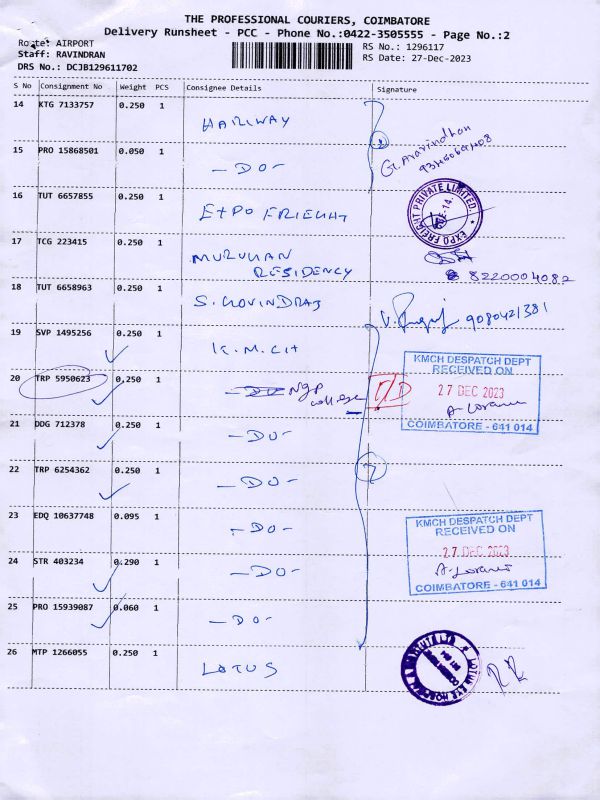 THE PROFESSIONAL COURIERS, COIMBATORE
Delivery Runsheet - PCC - Phone No.:0422-3505555 - Page No.:2
Route: AIRPORT
Staff: RAVINDRAN
DRS No.: DCJB129611702
RS No.: 1296117
RS Date: 27-Dec-2023
S No Consignment No Weight PCS Consignee Details Signature
14 KTG 7133757 0.250 1
HARIWAY
G. Aravindhan
15 PRO 15868501 0.050 1
- DO -
16 TUT 6657855 0.250 1
EXPO FRIEGHT
EXPO FREIGHT PRIVATE LIMITED
17 TCG 223415 0.250 1
MURUHAN
RESIDENCY
8220004082
18 TUT 6658963 0.250 1
S. GOVINDRAJ
9080421381
19 SVP 1495256 0.250 1
K.M.CH
20 TRP 5950623 0.250 1
- DO - Ngp
college
KMCH DESPATCH DEPT
RECEIVED ON
27 DEC 2023
COIMBATORE - 641 014
21 DDG 712378 0.250 1
- DO -
22 TRP 6254362 0.250 1
- DO -
23 EDQ 10637748 0.095 1
- DO -
KMCH DESPATCH DEPT
RECEIVED ON
27 DEC 2023
COIMBATORE - 641 014
24 STR 403234 0.290 1
- DO -
25 PRO 15939087 0.060 1
- DO -
26 MTP 1266055 0.250 1
LOTUS